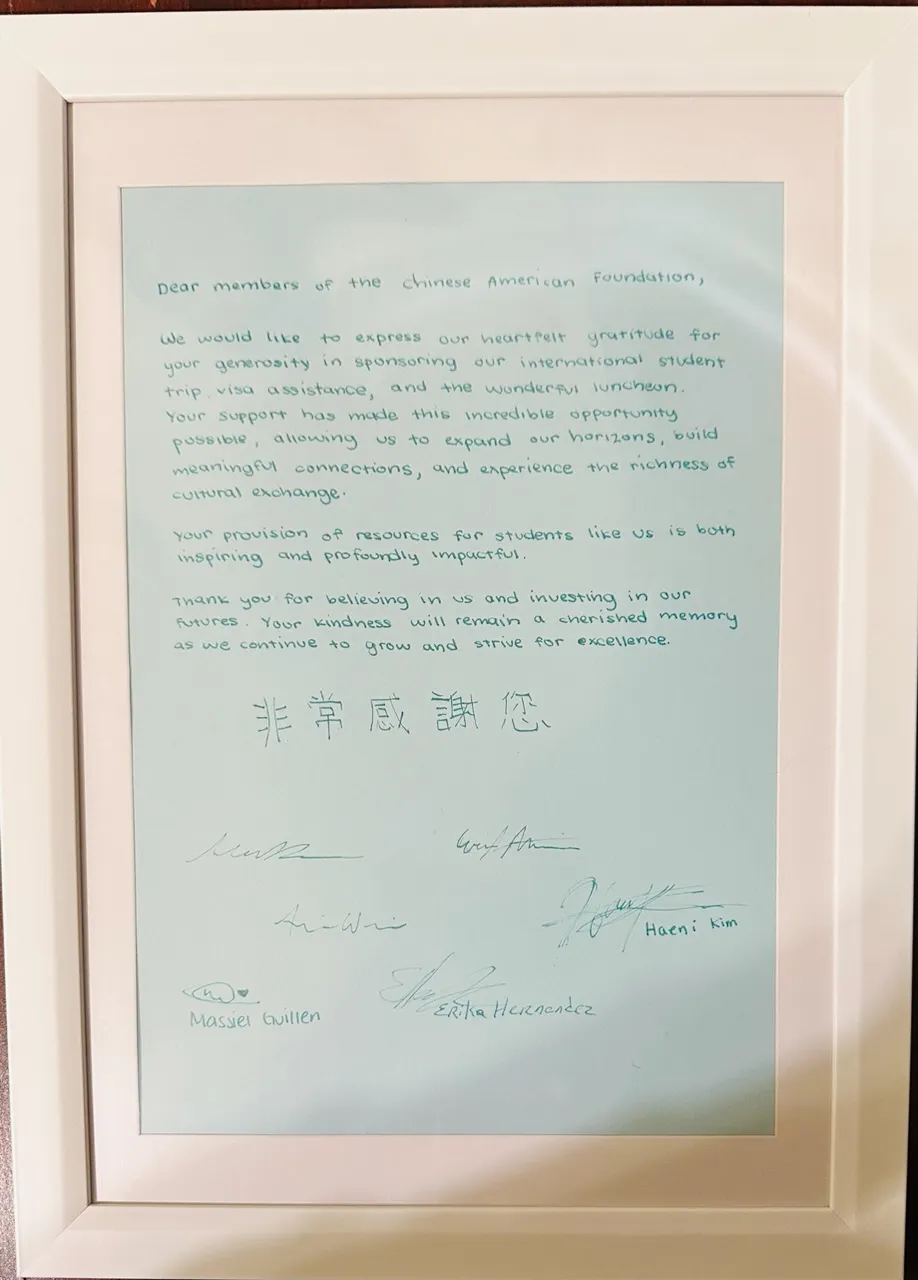 Dear members of the Chinese American Foundation,
We would like to express our heartfelt gratitude for
your generosity in sponsoring our international student
trip, visa assistance, and the wonderful luncheon.
Your support has made this incredible opportunity
possible, allowing us to expand our horizons, build
meaningful connections, and experience the richness of
cultural exchange.
Your provision of resources for students like us is both
inspiring and profoundly impactful.
Thank you for believing in us and investing in our
futures. Your kindness will remain a cherished memory
as we continue to grow and strive for excellence.
非常感謝您
Haeni Kim
Massiel Guillen
Erika Hernandez